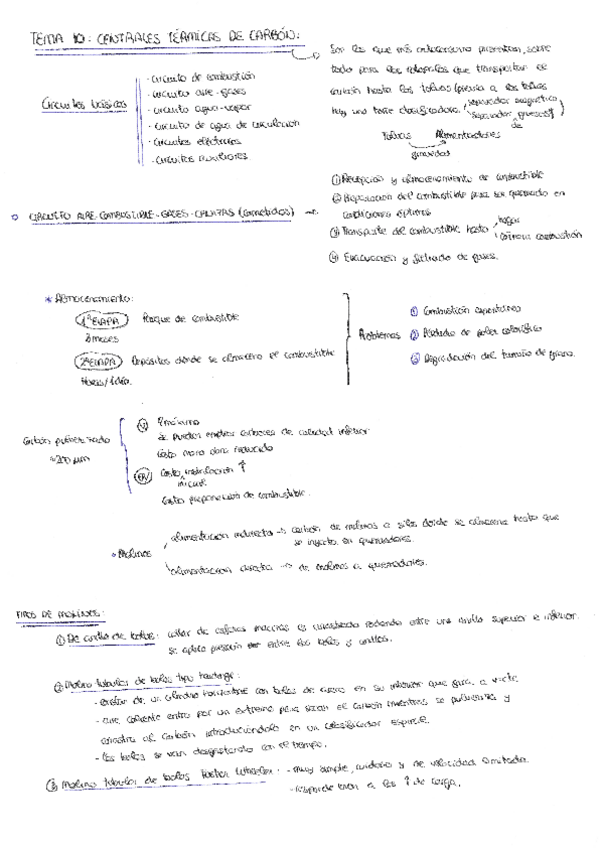 TEMA 10: CENTRALES TÉRMICAS DE CARBÓN:
Son las que más presentan, sobre
todo para los que transportan el
carbón hasta las tolvas (previa a las tolvas
hay una torre clasificadora. (separador magnético
separador gruesos)
Tolvas Alimentadores de
gravedad
Circuitos básicos
- circuito de combustión
- circuito aire-gases
- circuito agua-vapor
- circuito de agua de circulación
- circuitos eléctricos
- circuitos auxiliares
① Recepción y almacenamiento de combustible
② Preparación del combustible para ser quemado en
condiciones óptimas
③ Transporte del combustible hasta hogar
cámara combustión
④ Evacuación y filtrado de gases.
CIRCUITO AIRE-COMBUSTIBLE-GASES-CENIZAS
* Almacenamiento:
1ª ETAPA Parque de combustible
meses
2ª ETAPA Depósitos donde se almacena el combustible
Horas/1 día.
Problemas
① Combustión espontánea
② Pérdida de poder calorífico
③ Degradación del tamaño de grano.
Carbón pulverizado
≈200 μm
η máximo
Se pueden emplear carbones de calidad inferior
Costo mano obra reducido
Costo instalación ↑
inicial
Costo preparación de combustible.
• Molinos
alimentación indirecta → carbón de molinos a silos donde se almacena hasta que
se inyecta en quemadores.
alimentación directa → de molinos a quemadores.
TIPOS DE MOLINOS:
① De anillo de bolas: collar de esferas macizas es rodando entre una anilla superior e inferior.
se aplica presión entre las bolas y anillos.
② Molino tubular de bolas tipo hardinge:
- constan de un cilindro horizontal con bolas de acero en su interior que gira a veces
- aire caliente entra por un extremo para secar el carbón mientras se pulveriza y
arrastra al carbón introduciéndolo en un clasificador espiral.
- las bolas se van desgastando con el tiempo.
③ Molino tubular de bolas Foster Wheeler: - muy simple, y de velocidad limitada.
- responde bien a las ↑ de carga.